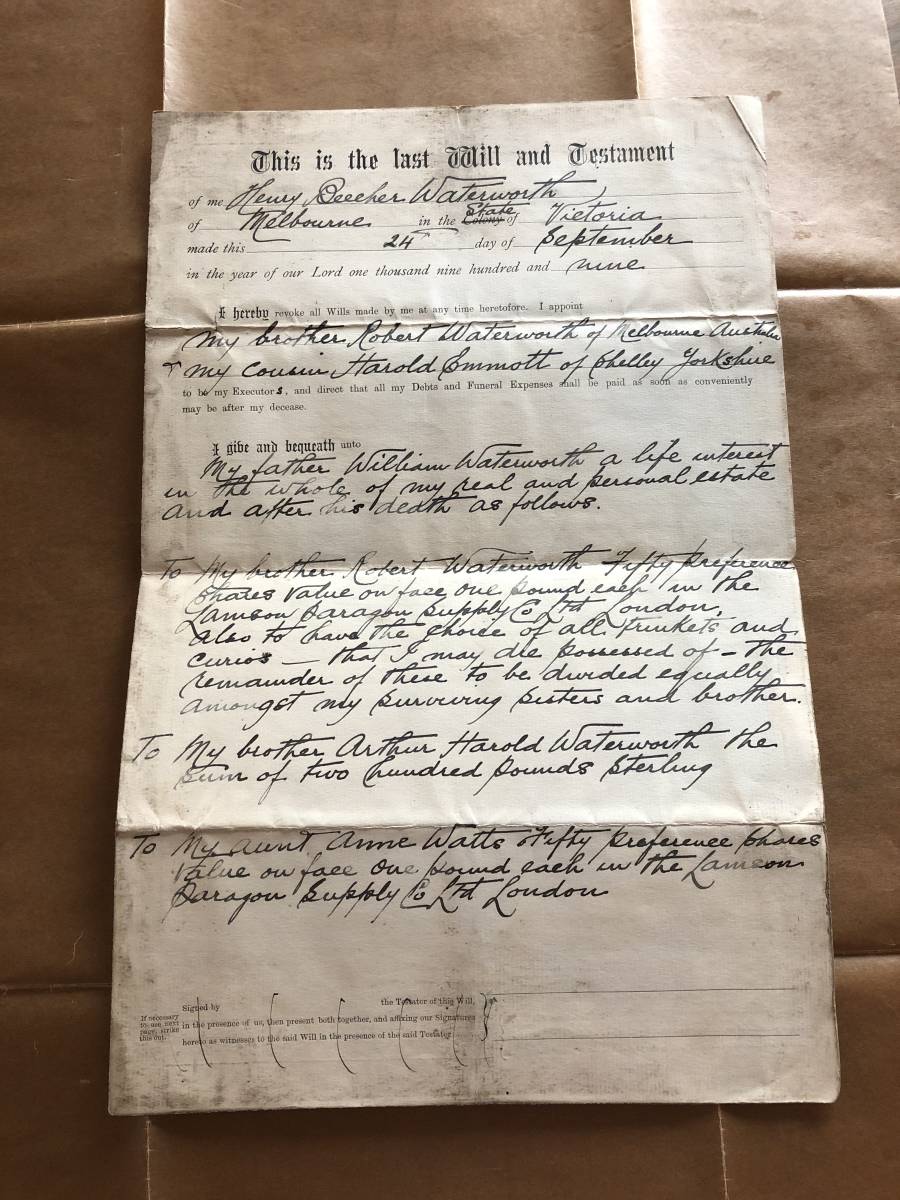 This is the last Will and Testament
of me Henry Beecher Waterworth
of Melbourne in the Colony State of Victoria
made this 24 day of September
in the year of our Lord one thousand nine hundred and nine
I hereby revoke all Wills made by me at any time heretofore. I appoint
My brother Robert Waterworth of Melbourne Australia
& my cousin Harold Emmott of Shelley Yorkshire
to be my Executors, and direct that all my Debts and Funeral Expenses shall be paid as soon as conveniently
may be after my decease.
I give and bequeath unto
My father William Waterworth a life interest
in the whole of my real and personal estate
and after his death as follows.
To My brother Robert Waterworth Fifty preference
shares value on face one pound each in the
Lamson Paragon Supply Co Ltd London,
also to have the choice of all trinkets and
curios – that I may die possessed of – the
remainder of these to be divided equally
amongst my surviving sisters and brother.
To My brother Arthur Harold Waterworth the
sum of two hundred pounds sterling
To My Aunt Anne Watts Fifty preference shares
value on face one pound each in the Lamson
Paragon Supply Co Ltd London
If necessary
to use next
page, strike
this out.
Signed by the Testator of this Will,
in the presence of us, then present both together, and affixing our Signatures
hereto as witnesses to the said Will in the presence of the said Testator